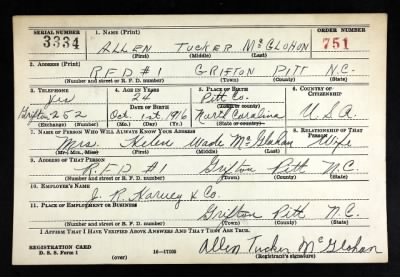 SERIAL NUMBER 1. NAME (Print) ORDER NUMBER
3334 ALLEN TUCKER McGLOHON 751
(First) (Middle) (Last)
2. ADDRESS (Print)
R.F.D #1 GRIFTON PITT N.C.
(Number and street or R. F. D. number) (Town) (County) (State)
3. TELEPHONE 4. AGE IN YEARS 5. PLACE OF BIRTH 6. COUNTRY OF CITIZENSHIP
Yes 24 Pitt Co.
DATE OF BIRTH (Town or county)
Grifton 252 Oct 1st 1916 North Carolina U.S.A.
(Exchange) (Number) (Mo.) (Day) (Yr.) (State or country)
7. NAME OF PERSON WHO WILL ALWAYS KNOW YOUR ADDRESS 8. RELATIONSHIP OF THAT PERSON
Mrs. Helen Wade McGlohon Wife
(Mr., Mrs., Miss) (First) (Middle) (Last)
9. ADDRESS OF THAT PERSON
R.F.D #1 Grifton Pitt N.C.
(Number and street or R. F. D. number) (Town) (County) (State)
10. EMPLOYER'S NAME
J. R. Harvey & Co.
11. PLACE OF EMPLOYMENT OR BUSINESS
Grifton Pitt N.C.
(Number and street or R. F. D. number) (Town) (County) (State)
I AFFIRM THAT I HAVE VERIFIED ABOVE ANSWERS AND THAT THEY ARE TRUE.
REGISTRATION CARD
D. S. S. Form 1 16—17105 Allen Tucker McGlohon
(over) (Registrant's signature)